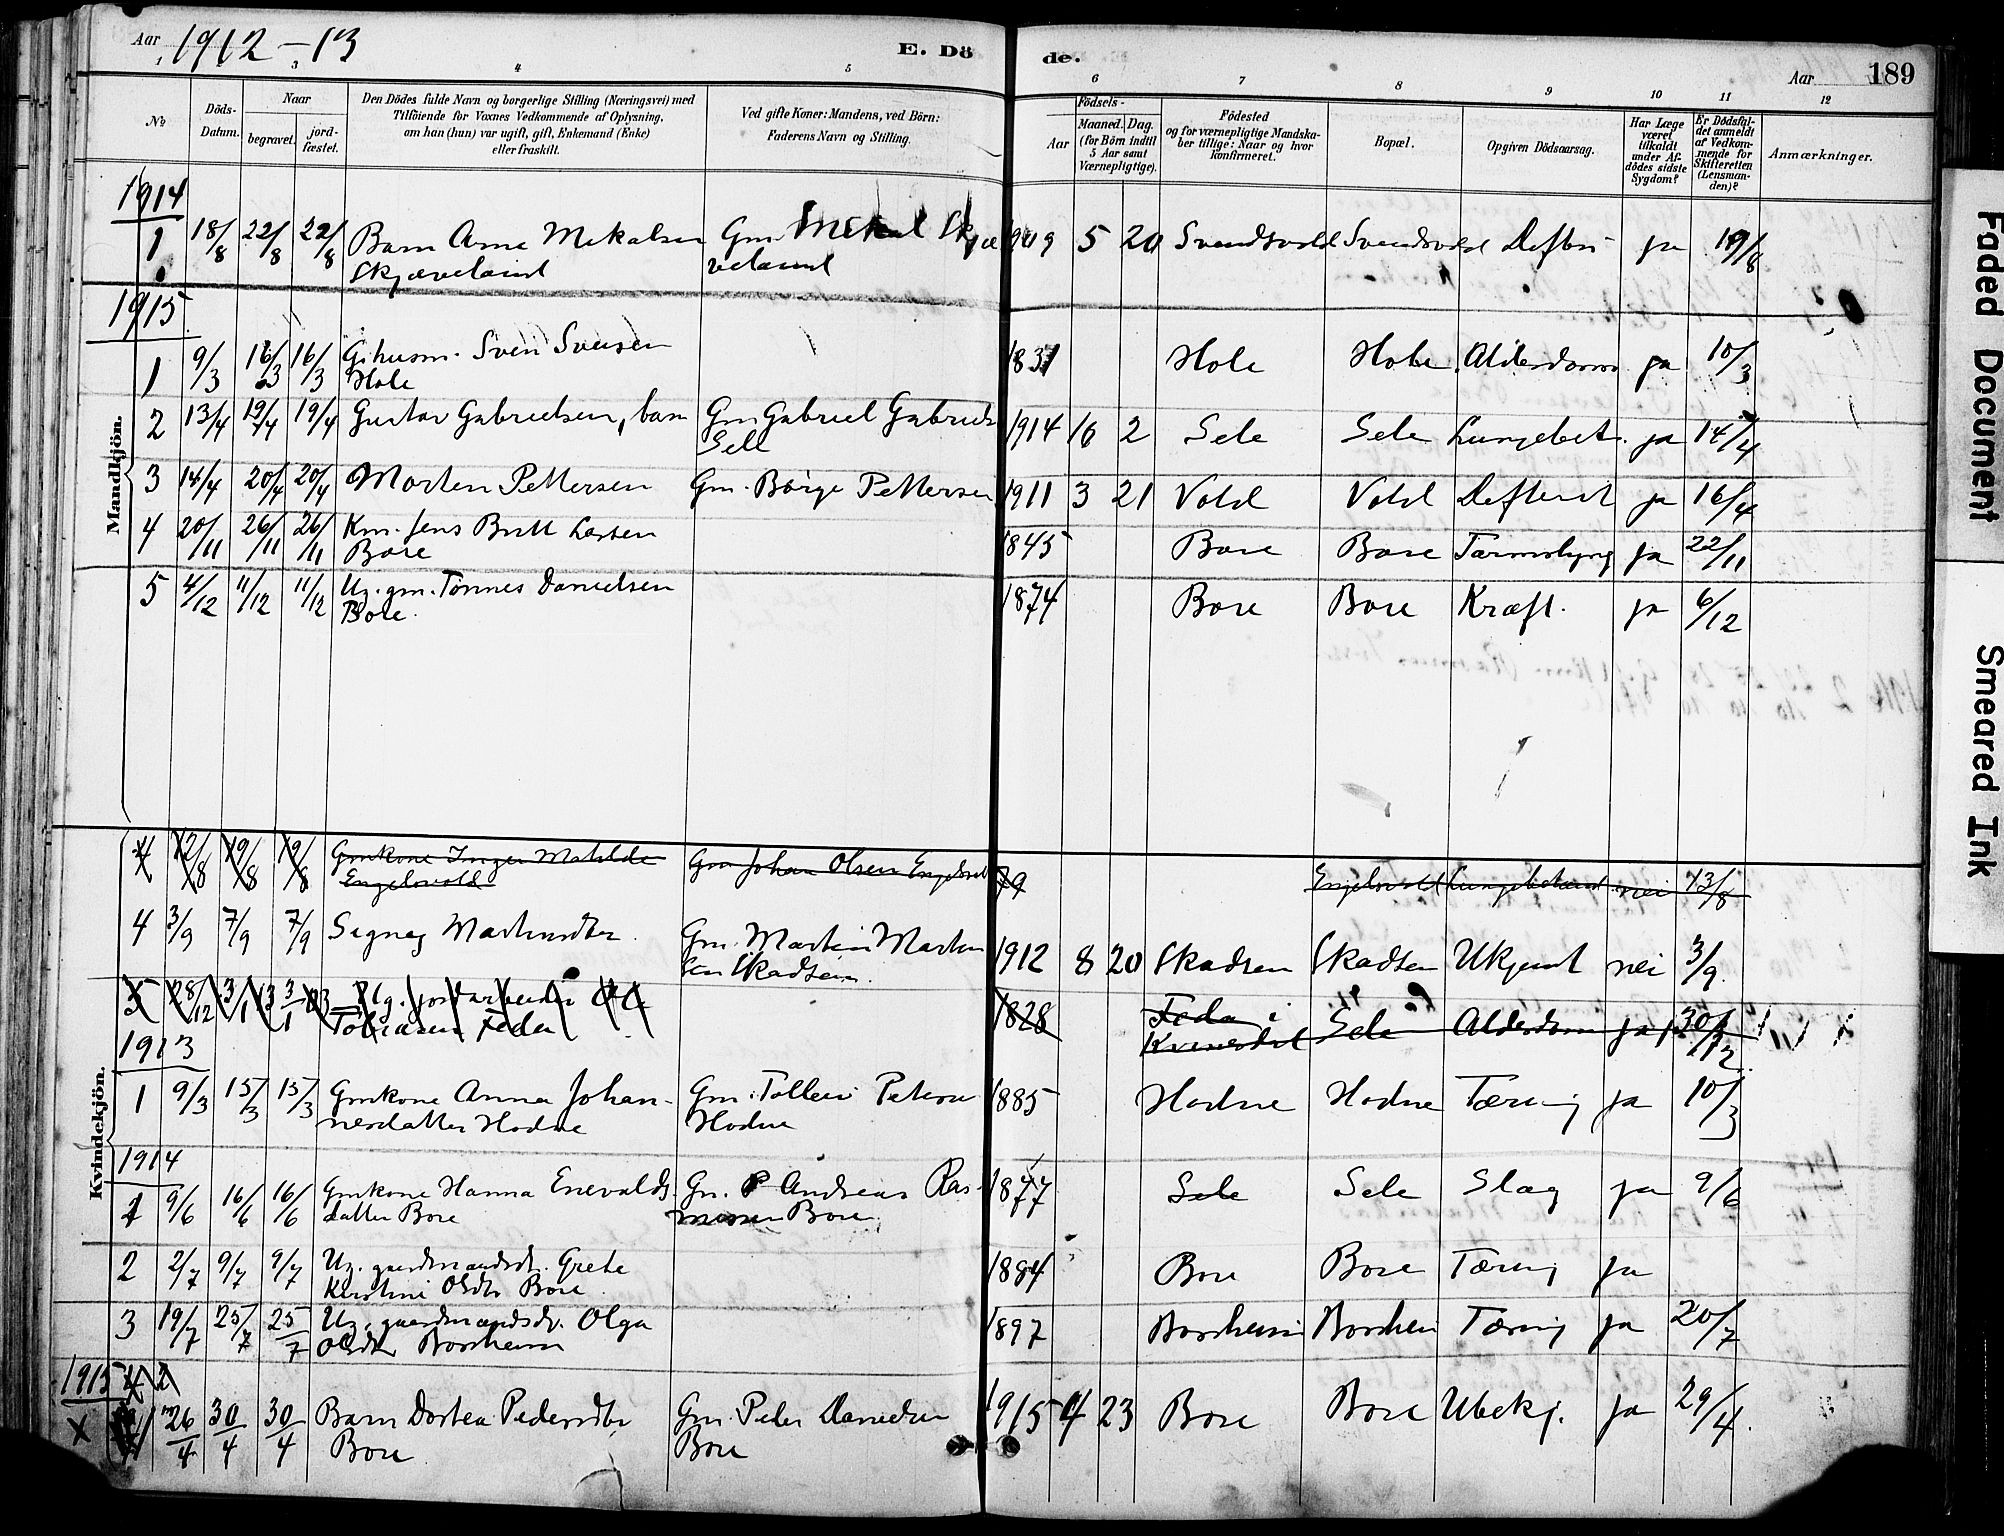 Aar 1912-13
E. Dö
de.
Aar 189
1 3 4 5 6 7 8 9 10 11 12
No
Döds-Datum.
Naar
begravet.
jord-fæstet.
Den Dödes fulde Navn og borgerlige Stilling (Næringsvei) med
Tilföiende for Voxnes Vedkommende af Oplysning,
om han (hun) var ugift, gift, Enkemand (Enke)
eller fraskilt.
Ved gifte Koner: Mandens, ved Börn:
Faderens Navn og Stilling.
Födsels-
Aar
Maaned. Dag.
(for Börn indtil
5 Aar samt
Værnepligtige).
Födested
og for værnepligtige Mandska-
ber tillige: Naar og hvor
konfirmeret.
Bopæl.
Opgiven Dödsaarsag.
Har Læge
været
tilkaldt
under Af-
dödes sidste
Sygdom?
Er Dödsfal-
det anmeldt
af Vedkom-
mende for
Skifteretten
(Lensman-
den)?
Anmærkninger.
Mandkjön.
1914
1 18/8 22/8 22/8 Barn Arne Mikalsen Gm Mikal Skjæ 1909 5 20 Svendsvold Svendsvold Difteri ja 19/8
Skjæveland veland
1915
1 9/3 16/3 16/3 Gihusm. Sven Svensen 1831 Hole Hole Alderdom ja 10/3
Hole
2 13/4 19/4 19/4 Gustav Gabrielsen, barn Gm Gabriel Gabriels 1914 16 2 Sele Sele Lungebet. ja 14/4
Sele
3 14/4 20/4 20/4 Morten Pettersen Gm. Börge Pettersen 1911 3 21 Vold Vold ja 16/4
4 20/11 26/11 26/11 Km. Jens Britt Larsen 1845 Bore Bore Tarmslyng ja 22/11
Bore
5 4/12 11/12 11/12 Ug. gm. Tönnes Danielsen 1874 Bore Bore Kræft. ja 6/12
Bore.
Kvindekjön.
12/8 19/8 19/8 Gmkone Inger Matilde Gm Johan Olsen Engelsvol 79 Engelsvold Lungebetænd. nei 13/8
Engelsvold
4 3/9 7/9 7/9 Signey Martinsdtr. Gm. Martin Martin 1912 8 20 Skadsem Skadsem Ukjent nei 3/9.
sen Skadsem.
5 28/12 3/1 13 3/1 13 1828 Feda i Sele Alderdom ja 30/12
Tobiasen Feda Kvinesdal
1913
1 9/3 15/3 15/3 Gmkone Anna Johan- Gm. Tollev Peters 1885 Hodne Hodne Tæring ja 10/3
nesdatter Hodne Hodne
1914
1 9/6 16/6 16/6 Gmkone Hanna Enevalds- Gm. Andreas Ras- 1877 Sele Sele Slag ja 9/6
datter Bore mussen Bore
2 2/7 9/7 9/7 Ug. gaardmandsdt. Grete 1884 Bore Bore Tæring ja
Kirstine Olsdtr Bore
3 19/7 25/7 25/7 Ug. gaardmandsdt. Olga 1897 Borsheim Borsheim Tæring ja 20/7
Olsdtr Borsheim
1915
X 26/4 30/4 30/4 Barn Dortea Pedersdtr Gm. Peder Danielsen 1915 4 23 Bore Bore Ubekj. ja 29/4.
Bore Bore
Faded Document
Smeared Ink